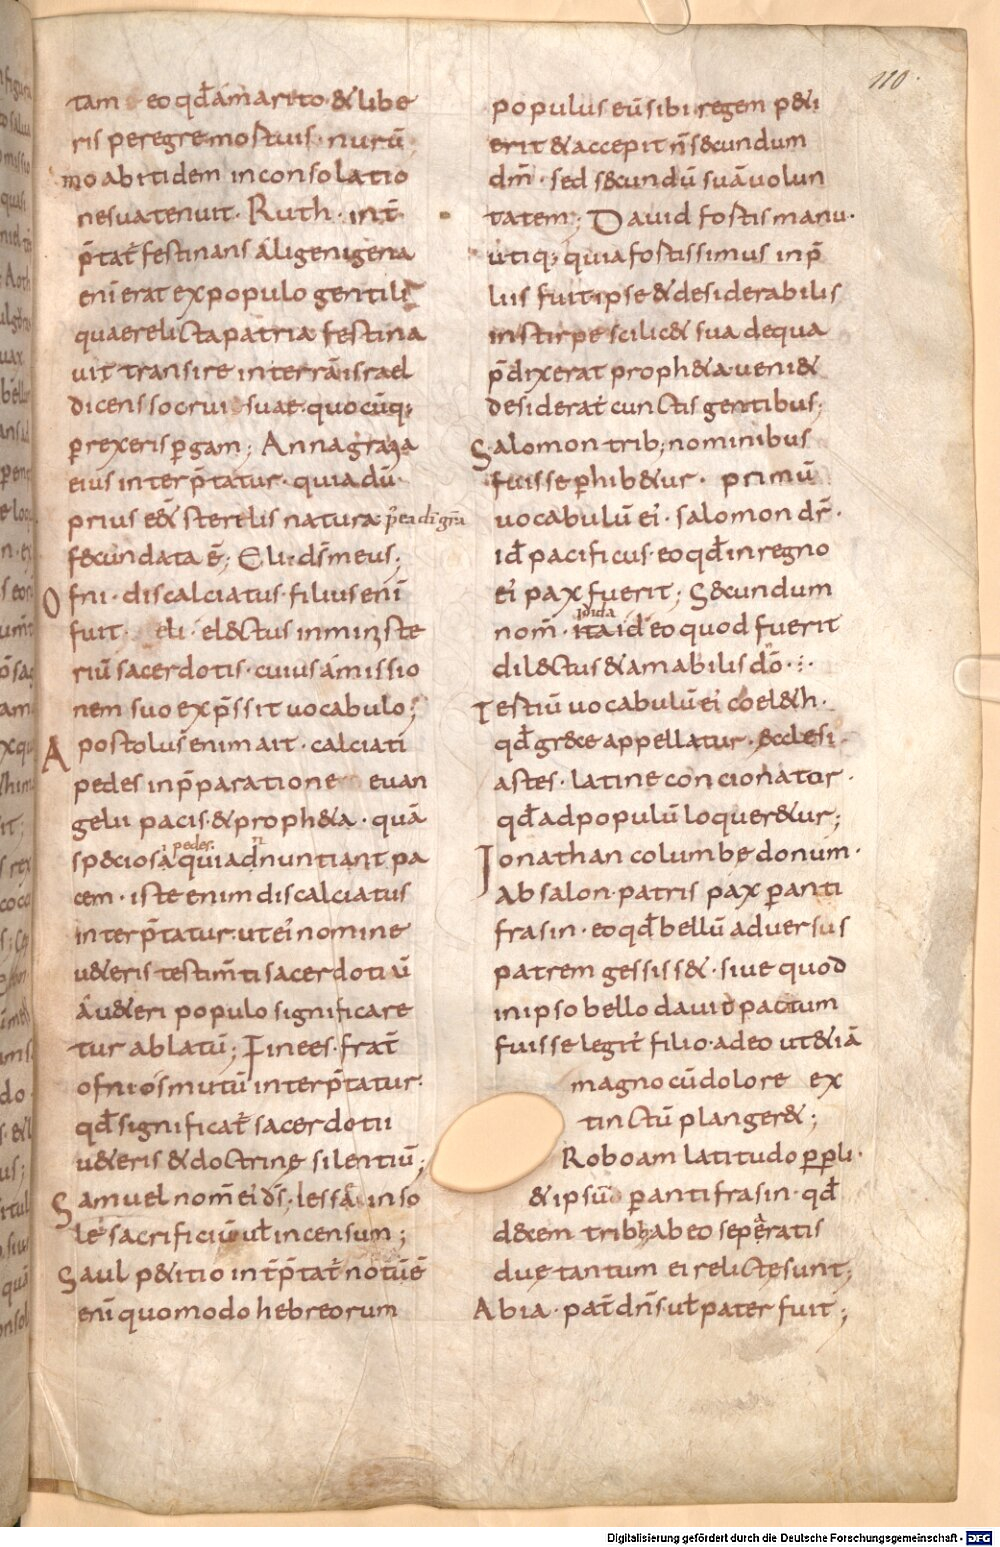 110.
tam eo qđ amarito · & libe
ris peregre mortuis · nurū
mo abitidem inconsolatio
ne sua tenuit · Ruth · int̄
p̄tat̄ festinans Aligenigena
enī erat expopulo gentili
quae relicta patria festina
uit transire in terrā israel
dicens socrui suae · quocūq;
ꝑrexeris ꝑgam ; Anna gratia
eius interp̄tatur · quia dū
prius eēt sterelis natura p̄ ei dī grā
fecundata ē ; Eli · ds̄ meus ;
Ofni · discalciatus · filius enī
fuit eli · electus in minste
riū sacerdotis · cuius amissio
nem suo exp̄ssit uocabulo ;
Apostolus enim ait · calciati
pedes in p̄paratione euan
gelii pacis · & proph&a · quā
speciosa quia adnuntiant pa
i pedes n
cem · iste enim discalciatus
interp̄tatur · ut ei nomine
u&eris testim̄ti sacerdotiū
a u&eri populo significare
tur ablatū ; Finees · frat̄
ofni os mutū interp̄tatur ·
qđ significat̄ sacerdotii
u&eris & doctrine silentiū ;
Samuel nom̄ ei ds̄ · lessā in so
le sacrificiū ul̄ incensum ;
Saul p&itio int̄p̄tat̄ notū ē
enī quomodo hebreorum
populus eū sibi regem p&i
erit & accepit n̄ s&cundum
dm̄ · sed s&cundū suā uolun
tatem ; Dauid fortis manu ·
utiq; quia fortissimus in p̄
liis fuit ipse & desiderabilis
in stirpe scilic& sua de qua
p̄dixerat proph&a · ueni&
desiderat̄ cunctis gentibus ;
Salomon trib; nominibus
fuisse ꝑhib&ur · primū
uocabulū ei · salomon dr̄ ·
id̄ pacificus · eo qđ in regno
ei pax fuerit ; S&cundum
idida
nom̄ · ita id eo quod fuerit
dil&ctus & amabilis dō · : ·
Testiū uocabulū ei coel&h ·
qđ gr&ce appellatur · &cclesi
astes · latine concionator ·
qđ ad populū loquer&ur ;
Ionathan columbe donum ·
Absalon · patris pax ꝑ anti
frasin · eo qđ bellū adversus
patrem gessiss& · siue quod
in ipso bello dauid pactum
fuisse legit̄ filio · adeo ut &iā
magno cū dolore ex
tinctū planger& ;
Roboam latitudo ꝑpli ·
& ipsū ꝑ antifrasin · qđ
d&cem trib; ab eo seperatis
a
due tantum ei relicte sunt ;
Abia · pat̄ dn̄s ul̄ pater fuit ;
Digitalisierung gefördert durch die Deutsche Forschungsgemeinschaft - DFG